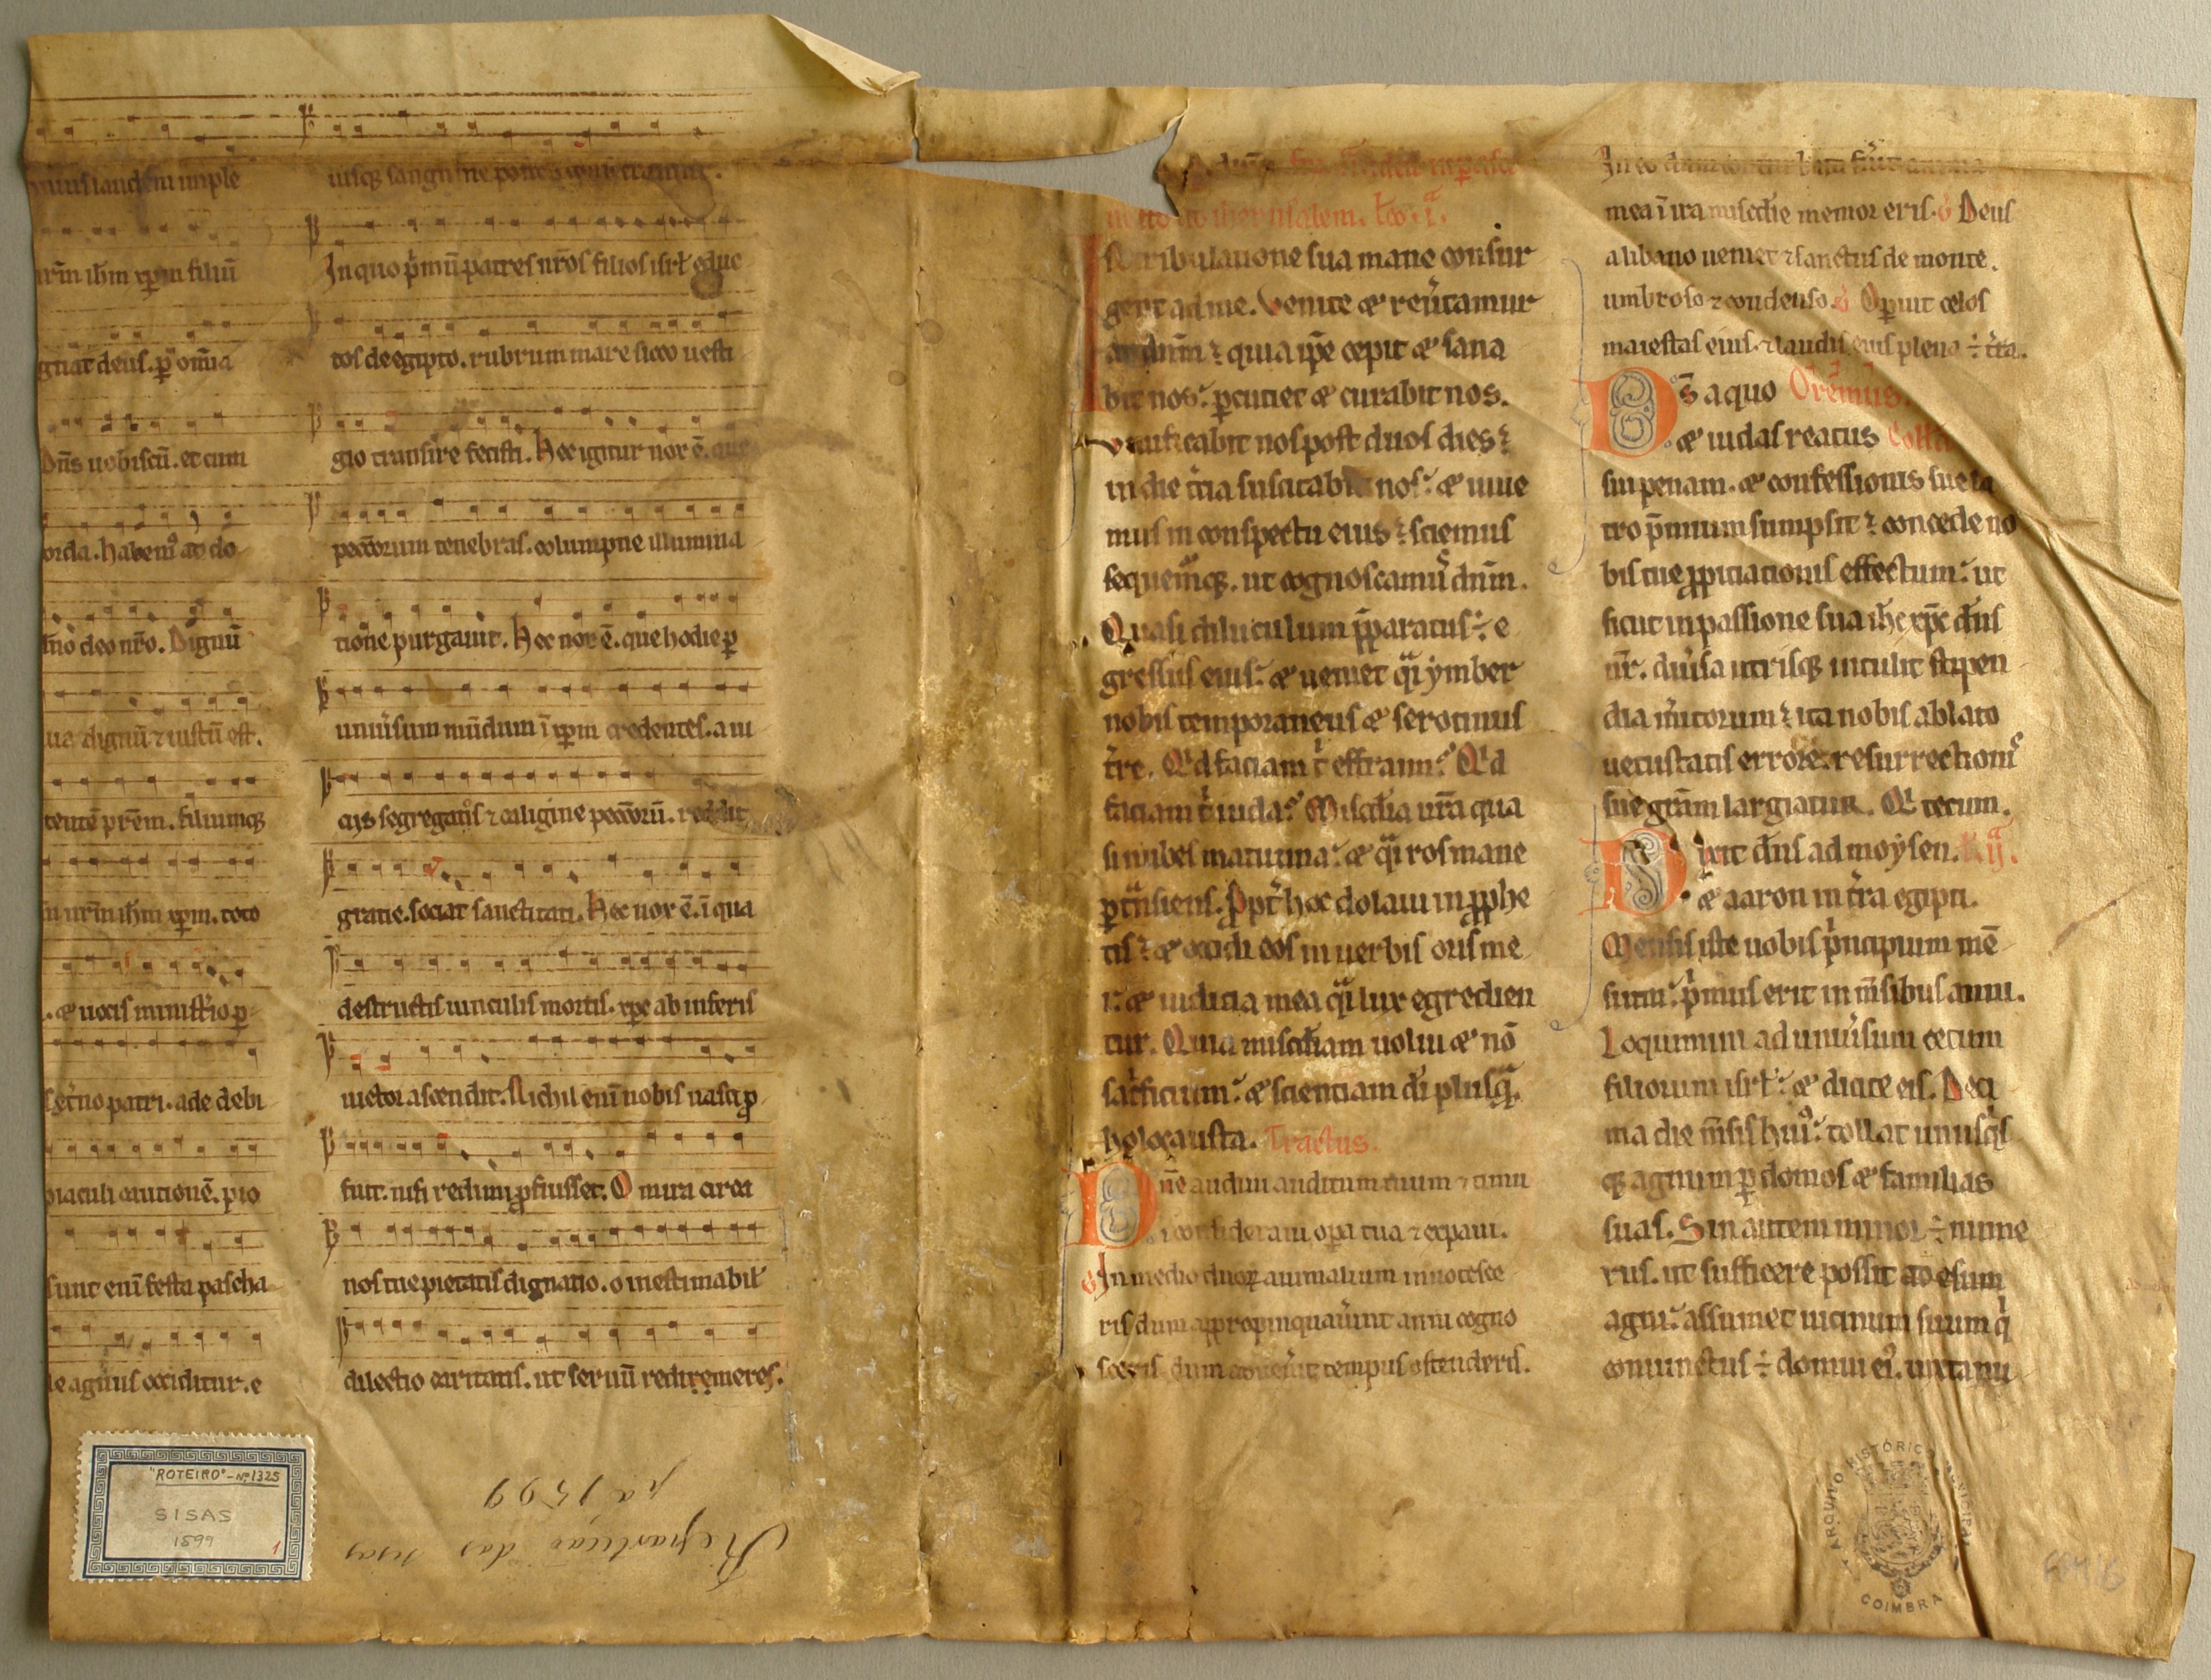 nuus laudem imple
nr̄m ih̄m xp̄m filiū
gnat deus. ꝑ om̄ia
Dn̄s uobiscū. et cum
orda. habem⁹ ad do
n̄o deo nr̄o. Dignū
ua dignū ⁊ iustū est.
tentē pr̄em. filiumqꝫ
nr̄m ih̄m xp̄m. toto
. & uocis minist̄io ꝑ
et̄no patri. ade debi
piaculi cautionē. pio
sunt eni festa pascha
le agnus occiditur. e
uisqꝫ sanguine postes consecrantur.
In quo p̄mū patres nr̄os filios isrl̄ educ
tos de egipto. rubrum mare sicco uesti
gio transire fecisti. Hec igitur nox ē. que
peccatorum tenebras. columpne illumina
tione purgauit. Hec nox ē. que hodie ꝑ
uniuersum mūdum ī xp̄m credentes. a ui
cijs segregatos ⁊ caligine peccatorū. reddit
gratie. sociat sanctitati. Hec nox ē. ī qua
destructis uinculis mortis. xp̄c ab inferis
uictor ascendit. Nichil enī nobis nasci ꝓ
fuit. nisi redimi ꝓfuisset. O mira circa
nos tue pietatis dignatio. o inestimabil̄
dilectio caritatis. ut seruū redimemeres.
"ROTEIRO" - Nº 1325
SISAS
1599
1
Repartiçao das sisas
pa 1599
In tribulatione sua mane consur
gent ad me. Venite & reūtamur
ad dn̄m ⁊ quia ip̄e cepit & sana
bit nos. ꝑcutiet & curabit nos.
Viuificabit nos post duos dies ⁊
in die t̄cia suscitabit nos. & uiue
mus in conspectu eius ⁊ sciemus
sequem̄qꝫ. ut cognoscamus dn̄m.
Quasi diluculum p̄paratus ÷ e
gressus eius. & ueniet q̄i ymber
nobis temporaneus & serotinus
t̄re. Qd̄ faciam t̄ effraim? Qd̄
faciam t̄ iuda? Misc̄dia ur̄a qua
si nubes matutina. & q̄i ros mane
ꝑt̄nsiens. Ppt̄ hoc dolaui in ꝓphe
tis ⁊ & occidi eos in uerbis oris me
i. & iudicia mea q̄i lux egredien
tur. Quia misc̄diam uolui & nō
sac̄ficium. & scientiam di plusq̄
holocausta. Tractus.
Dn̄e audiui auditum tuum ⁊ timu
i consideraui oꝑa tua ⁊ expaui.
In medio duoꝝ animalium innotesce
ris dum appropinquau̅int anni cogno
sceris dum aduen̄it tempus ostenderis.
mea ī ira misc̄die memor eris. Deus
a libano ueniet ⁊ sanctus de monte.
umbroso ⁊ condenso. Oꝑuit celos
maiestas eius. ⁊ laudis eius plena ÷ t̄ra.
Ds̄ a quo Oremus.
& iudas reatus Coll
sui penam. & confessionis sue la
tro p̄mium sumpsit ⁊ concede no
bis tue ꝓpiciacionis effectum. ut
sicut in passione sua ih̄c xp̄c dn̄s
nr̄. diu̅sa utrisqꝫ intulit stipen
dia m̄itorum ⁊ ita nobis ablato
uetustatis errore. resurrectionis
sue gr̄am largiatur. Qi tecum.
Dixit dn̄s ad moysen.
& aaron in t̄ra egipti.
Mensis iste uobis p̄ncipium mē
sium. p̄mus erit in m̄sibus anni.
Loquimini ad uniu̅sum cetum
filiorum isrl̄. & dicite eis. Deci
ma die m̄sis hui⁹. tollat unusq̄s
qꝫ agnum ꝑ domos & familias
suas. Sin autem minor ÷ nume
rus. ut sufficere possit ad esum
agni. assumet uicinum suum q̄
coniunctus ÷ domui ei⁹. iuxta nu
ARQUIVO HISTÓRICO MUNICIPAL
COIMBRA